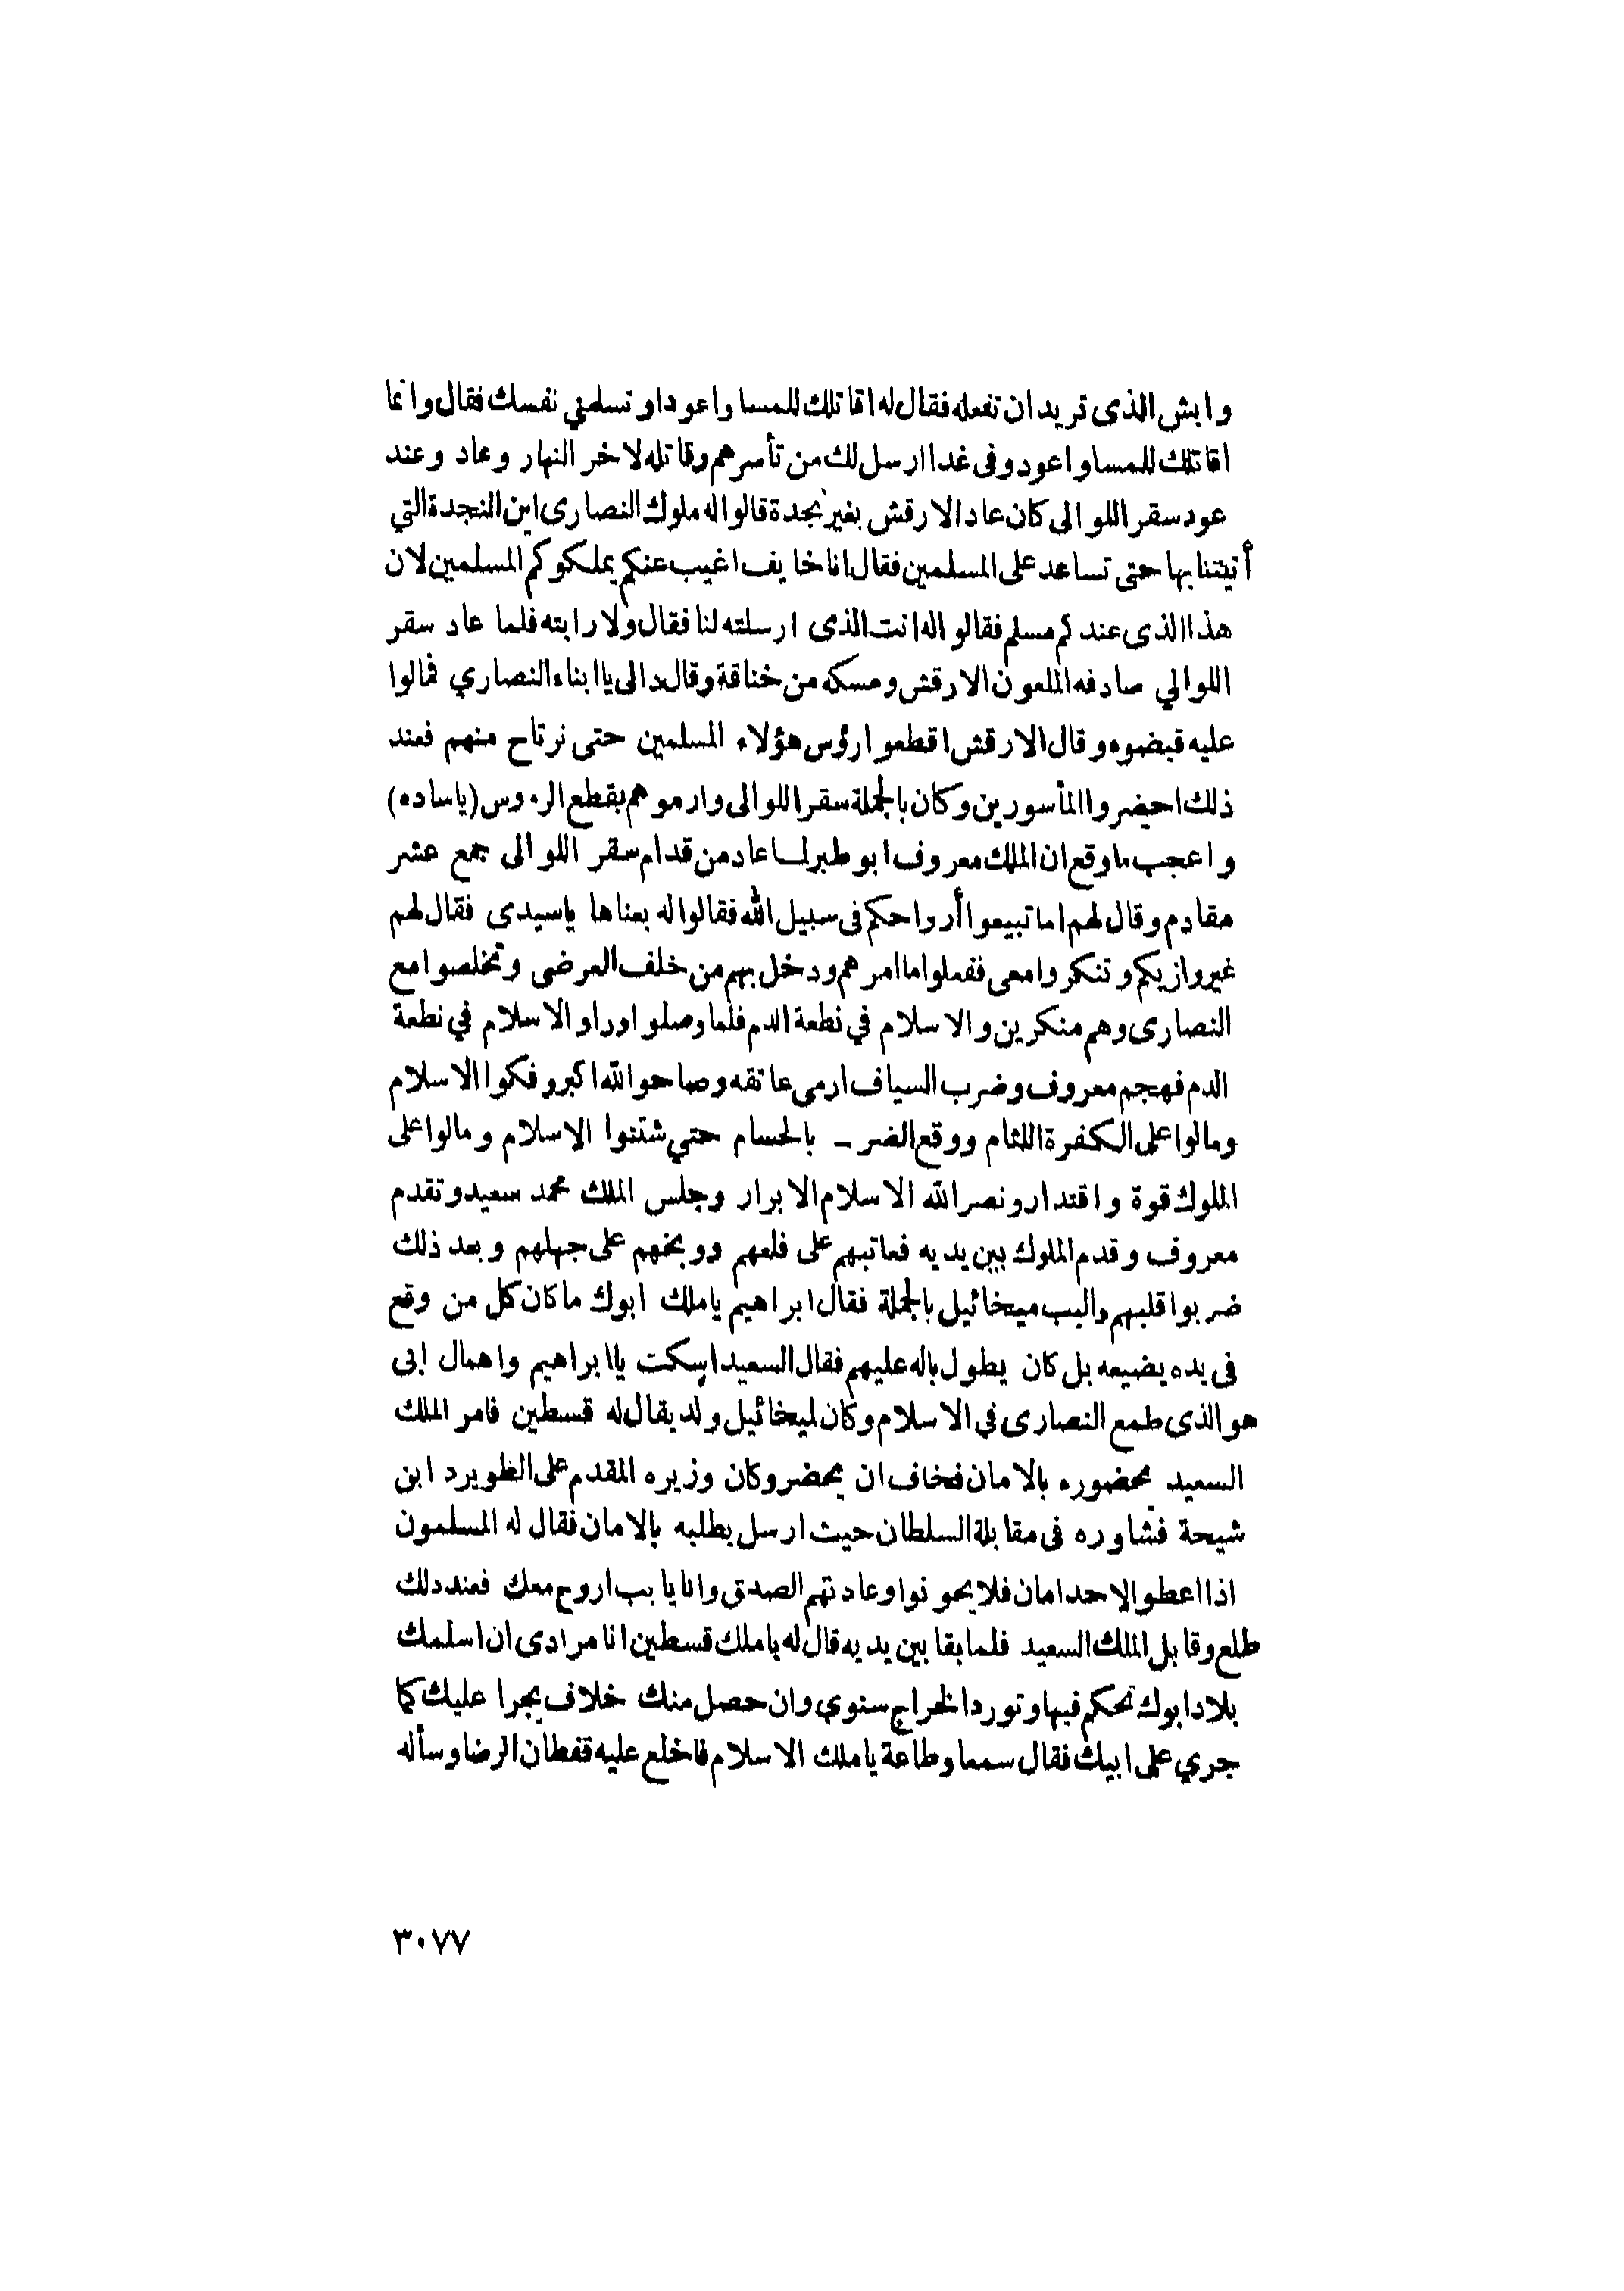 وايش الذى تريد ان تفعله فقال له اقاتلك للمسا واعود او تسلمني نفسك فقال وانما
اقاتلك للمسا واعود وفى غدا ارسل لك من تأسرهم وقاتله لاخر النهار وعاد وعند
عود سقر اللوالى كان عاد الارقش بغير نجدة قالوا له ملوك النصارى اين النجدة التي
أتيتنا بها حتى تساعد على المسلمين فقال انا خايف اغيب عنكم يملكوكم المسلمين لان
هذا الذى عندكم مسلم فقالوا له انت الذى ارسلته لنا فقال ولا رايته فلما عاد سقر
اللوالي صادفه الملعون الارقش ومسكه من خناقة وقال دالى يا ابناء النصاري فمالوا
عليه قبضوه وقال الارقش اقطعوا رؤس هؤلاء المسلمين حتى نرتاح منهم فعند
ذلك احيضروا المأسورين وكان بالجملة سقر اللوالى وارموهم بقطع الرءوس (ياساده)
واعجب ماوقع ان الملك معروف ابو طبر لما عاد من قدام سقر اللوالى جمع عشر
مقادم وقال لهم اما تبيعوا أرواحكم فى سبيل الله فقالوا له بعناها ياسيدى فقال لهم
غيروا زيكم وتنكروا معى ففعلوا ما امرهم ودخل بهم من خلف العرضى وتخلصوا مع
النصارى وهم منكرين والاسلام في نطعة الدم فلما وصلوا وراو الاسلام في نطعة
الدم فهجم معروف وضرب السياف ارمى عاتقه وصاحوا الله اكبر وفكوا الاسلام
ومالوا على الكفرة اللئام ووقع الضر ـ بالحسام حتي شتتوا الاسلام ومالوا على
الملوك قوة واقتدار ونصر الله الاسلام الابرار وجلس الملك محمد سعيد وتقدم
معروف وقدم الملوك بين يديه فعاتبهم على فلعهم ووبخهم على جهلهم وبعد ذلك
ضربوا قلبهم والبب ميخائيل بالجملة فقال ابراهيم ياملك ابوك ماكان كل من وقع
فى يده يضيعه بل كان يطول باله عليهم فقال السعيد اسكت يا ابراهيم واهمال ابى
هو الذى طمع النصارى في الاسلام وكان لميخائيل ولد يقال له قسطين فامر الملك
السعيد بحضوره بالامان فخاف ان يحضر وكان وزيره المقدم على الطويرد ابن
شيحة فشاوره فى مقابلة السلطان حيث ارسل يطلبه بالامان فقال له المسلمون
اذا اعطوا لاحد امان فلا يحونوا وعادتهم الصدق وانا يابب اروح معك فعند دلك
طلع وقابل الملك السعيد فلما بقا بين يديه قال له ياملك قسطين انا مرادى ان اسلمك
بلاد ابوك تحكم فيها وتورد الخراج سنوي وان حصل منك خلاف يجرا عليك كما
جري على ابيك فقال سمعا وطاعة ياملك الاسلام فاخلع عليه قفطان الرضا وسأله
٣٠٧٧